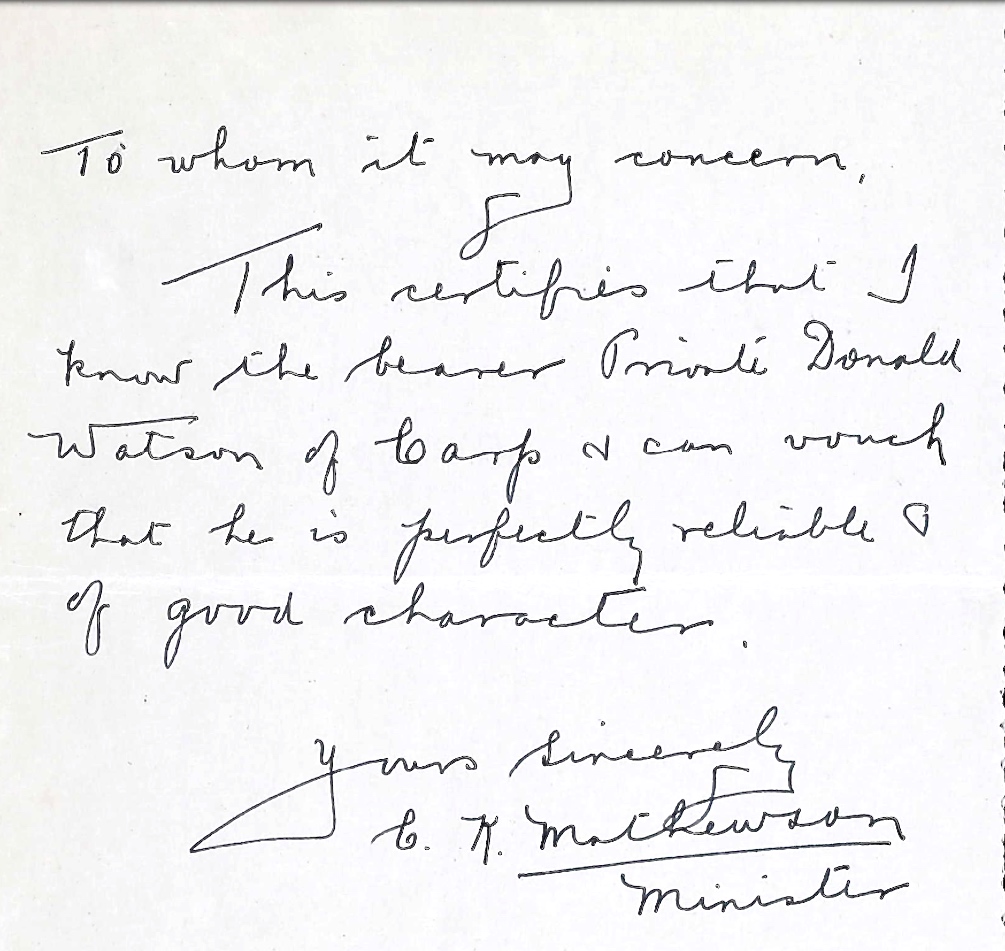 To whom it may concern,
This certifies that I
know the bearer Private Donald
Watson of Carp & can vouch
that he is perfectly reliable &
of good character.
Yours sincerely
C. K. Mathewson
Minister